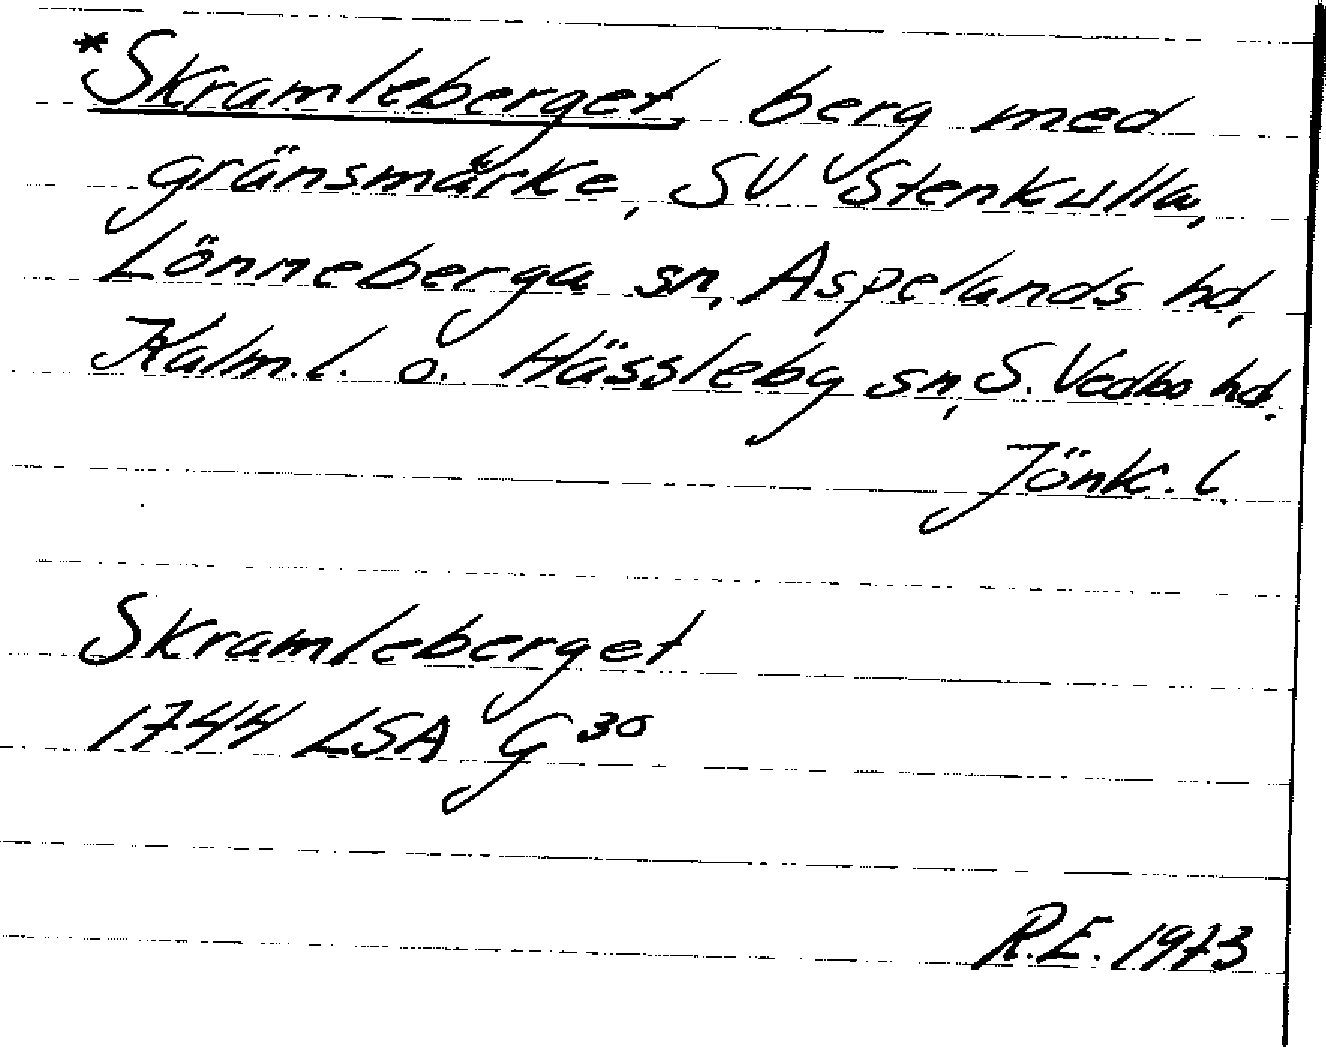 *Skramleberget, berg med
gränsmärke, SV Stenkulla,
Lönneberga sn, Aspelands hd,
Kalm. l. o. Hässleby sn, S. Vedbo hd.
Jönk. l.
Skramleberget
1744 LSA G 30
R.E. 1973